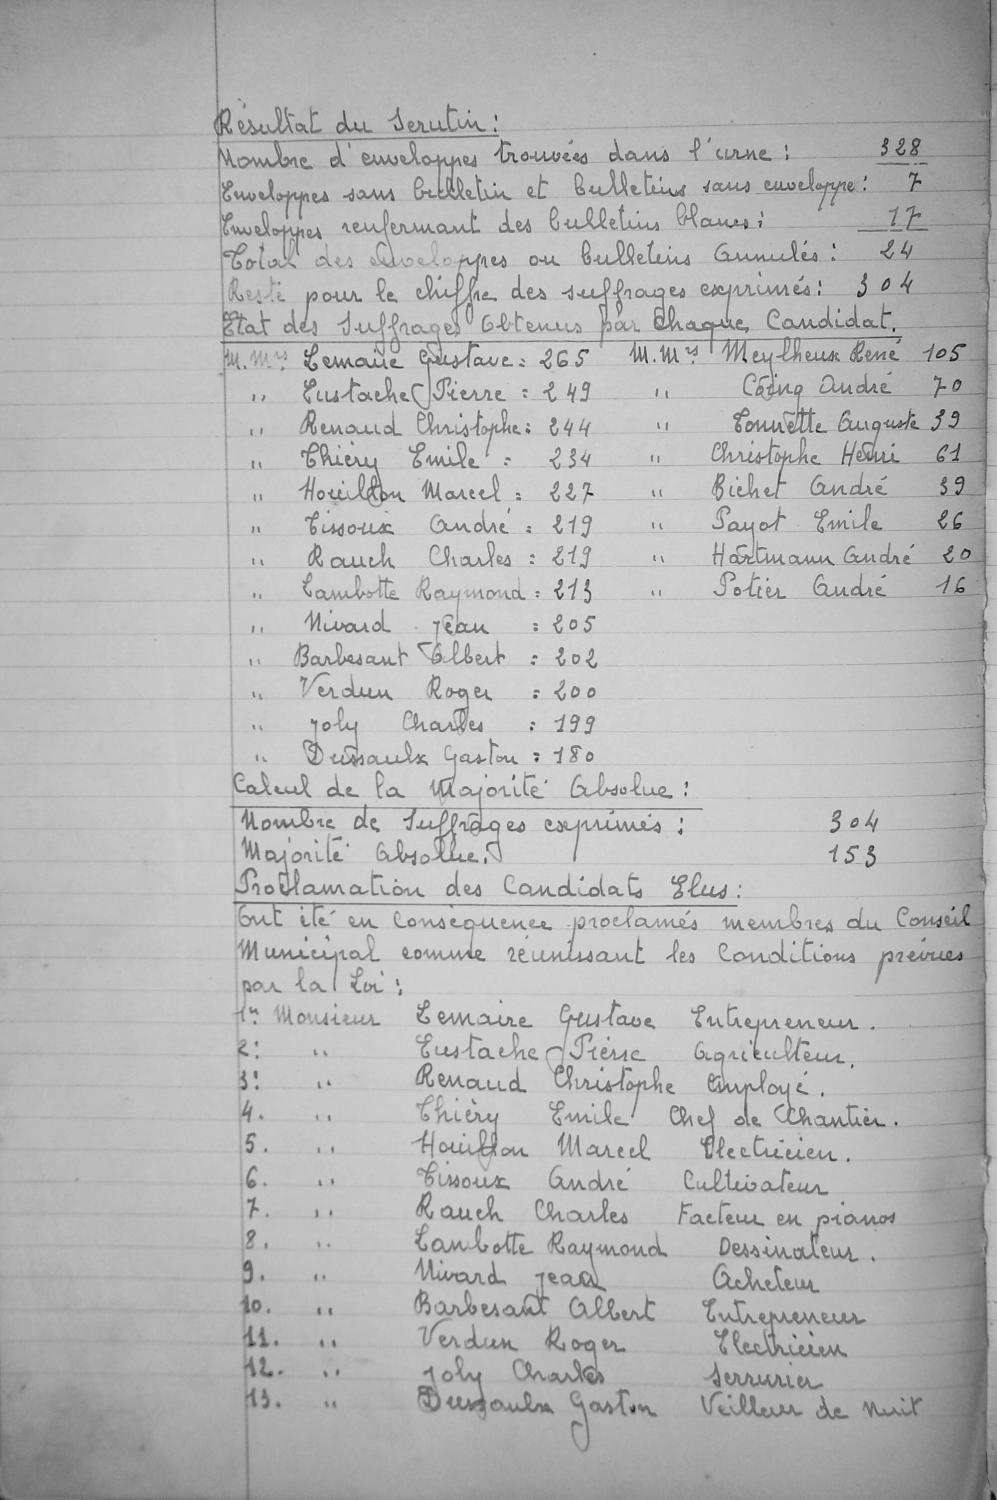 Résultat du Scrutin :
Nombre d'enveloppes trouvées dans l'urne : 328
Enveloppes sans bulletin et bulletins sans enveloppe : 7
Enveloppes renfermant des bulletins blancs : 17
Total des enveloppes ou bulletins Annulés : 24
Reste pour le chiffre des suffrages exprimés : 304
Etat des Suffrages Obtenus par Chaque Candidat.
M.Mrs Lemaire Gustave : 265 M.Mrs Meylheux René 105
" Eustache Pierre : 249 " Coing André 70
" Renaud Christophe : 244 " Tourette Auguste 39
" Thiéry Emile : 234 " Christophe Henri 61
" Houillon Marcel : 227 " Bichet André 39
" Tissoux André : 219 " Payot Emile 26
" Rauch Charles : 219 " Hartmann André 20
" Lambotte Raymond : 213 " Potier André 16
" Nivard Jean : 205
" Barbesant Albert : 202
" Verdun Roger : 200
" Joly Charles : 199
" Dussaulx Gaston : 180
Calcul de la Majorité Absolue :
Nombre de Suffrages exprimés : 304
Majorité Absolue. 153
Proclamation des Candidats Elus :
Ont été en conséquence proclamés membres du Conseil
Municipal comme réunissant les Conditions prévues
par la Loi :
1r. Monsieur Lemaire Gustave Entrepreneur.
2: " Eustache Pierre Agriculteur.
3: " Renaud Christophe Employé.
4. " Thiéry Emile Chef de Chantier.
5. " Houillon Marcel Electricien.
6. " Tissoux André Cultivateur
7. " Rauch Charles Facteur en pianos
8. " Lambotte Raymond Dessinateur.
9. " Nivard Jean Acheteur
10. " Barbesant Albert Entrepreneur
11. " Verdun Roger Electricien
12. " Joly Charles Serrurier
13. " Dussaulx Gaston Veilleur de Nuit